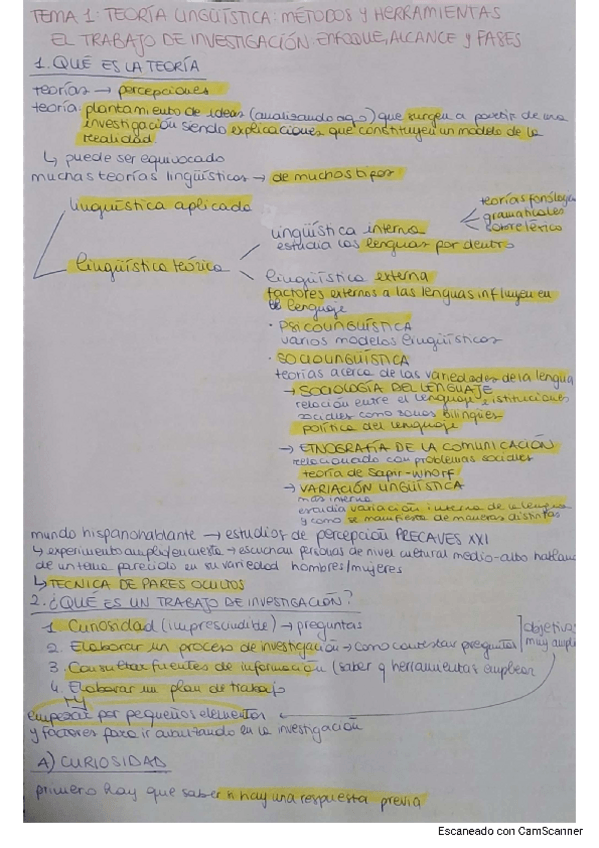 TEMA 1: TEORÍA LINGÜÍSTICA: MÉTODOS Y HERRAMIENTAS
EL TRABAJO DE INVESTIGACIÓN: ENFOQUE, ALCANCE Y FASES
1. QUÉ ES LA TEORÍA
teorías → percepciones
teoría: plantamiento de ideas (analizando algo) que surgen a partir de una
investigación siendo explicaciones que constituyen un modelo de la
realidad
↳ puede ser equivocado
muchas teorías lingüísticas → de muchos tipos
lingüística aplicada
lingüística teórica
lingüística interna
estudia las lenguas por dentro
teorías fonológic
gramaticales
sobre léxico
lingüística externa
factores externos a las lenguas influyen en
el lenguaje
· PSICOLINGÜÍSTICA
varios modelos lingüísticos
· SOCIOLINGÜÍSTICA
teorías acerca de las variedades de la lengua
→ SOCIOLOGÍA DEL LENGUAJE
relación entre el lenguaje e instituciones
sociales como zonas bilingües
política del lenguaje
→ ETNOGRAFÍA DE LA COMUNICACIÓN
relacionado con problemas sociales
teoría de Sapir-Whorf
→ VARIACIÓN LINGÜÍSTICA
más interna
estudia variación interna de la lengua
y como se manifiesta de maneras distintas
mundo hispanohablante → estudios de percepción PRECAVES XXI
↳ experimento amplio/encuesta → escuchan personas de nivel cultural medio-alto habland
de un tema parecido en su variedad hombres/mujeres
↳ TECNICA DE PARES OCULTOS
2. ¿QUÉ ES UN TRABAJO DE INVESTIGACIÓN?
1. Curiosidad (imprescindible) → preguntas
2. Elaborar un proceso de investigación → como contestar preguntas
3. Consultar fuentes de información (saber q herramientas emplear
4. Elaborar un plan de trabajo
objetivo
muy ampli
empezar por pequeños elementos
y factores para ir avanzando en la investigación
A) CURIOSIDAD
primero hay que saber si hay una respuesta previa
Escaneado con CamScanner